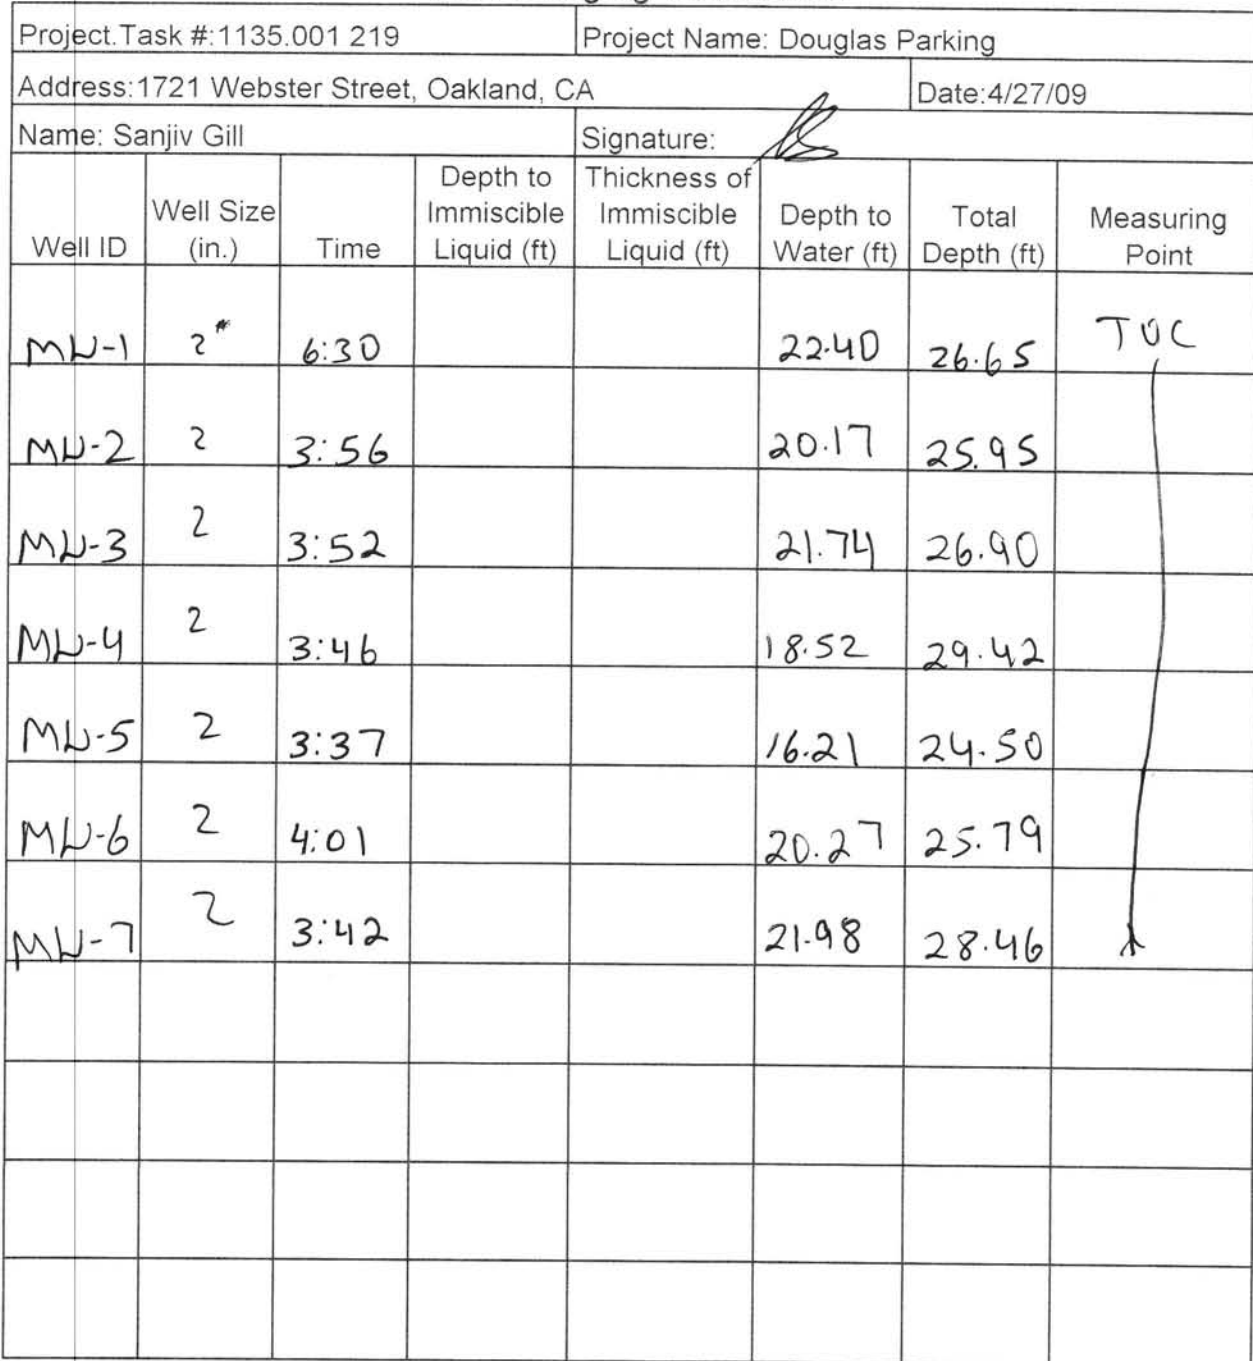 Project.Task #:1135.001 219 Project Name: Douglas Parking
Address:1721 Webster Street, Oakland, CA Date:4/27/09
Name: Sanjiv Gill Signature:
Well ID Well Size (in.) Time Depth to Immiscible Liquid (ft) Thickness of Immiscible Liquid (ft) Depth to Water (ft) Total Depth (ft) Measuring Point
MW-1 2" 6:30 22.40 26.65 TOC
MW-2 2 3:56 20.17 25.95
MW-3 2 3:52 21.74 26.90
MW-4 2 3:46 18.52 29.42
MW-5 2 3:37 16.21 24.50
MW-6 2 4:01 20.27 25.79
MW-7 2 3:42 21.98 28.46